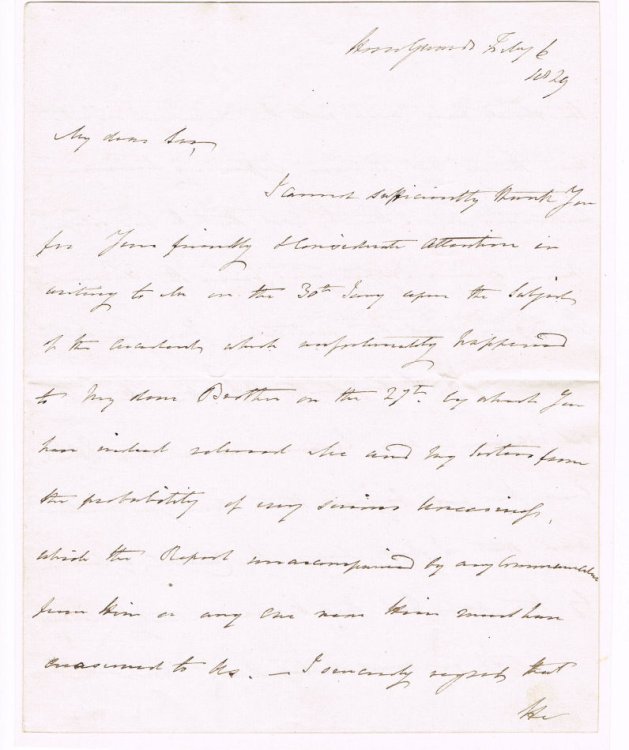 Horse Guards Feby 6
1829
My dear Sir,
I cannot sufficiently thank You
for Your friendly & Considerate Attention in
writing to Me on the 30th Jany upon the Subject
of the Accident, which unfortunately happened
to My dear Brother on the 27th. by which You
have indeed relieved Me and My Sisters from
the probability of very serious Uneasiness,
which the Report unaccompanied by any Communication
from Him or any one near Him must have
occasioned to Us. — I sincerely regret that
He